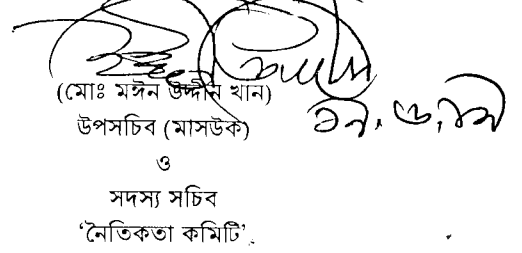 (মোঃ মঈন উদ্দীন খান)
উপসচিব (মাসউক)
ও
সদস্য সচিব
‘নৈতিকতা কমিটি’